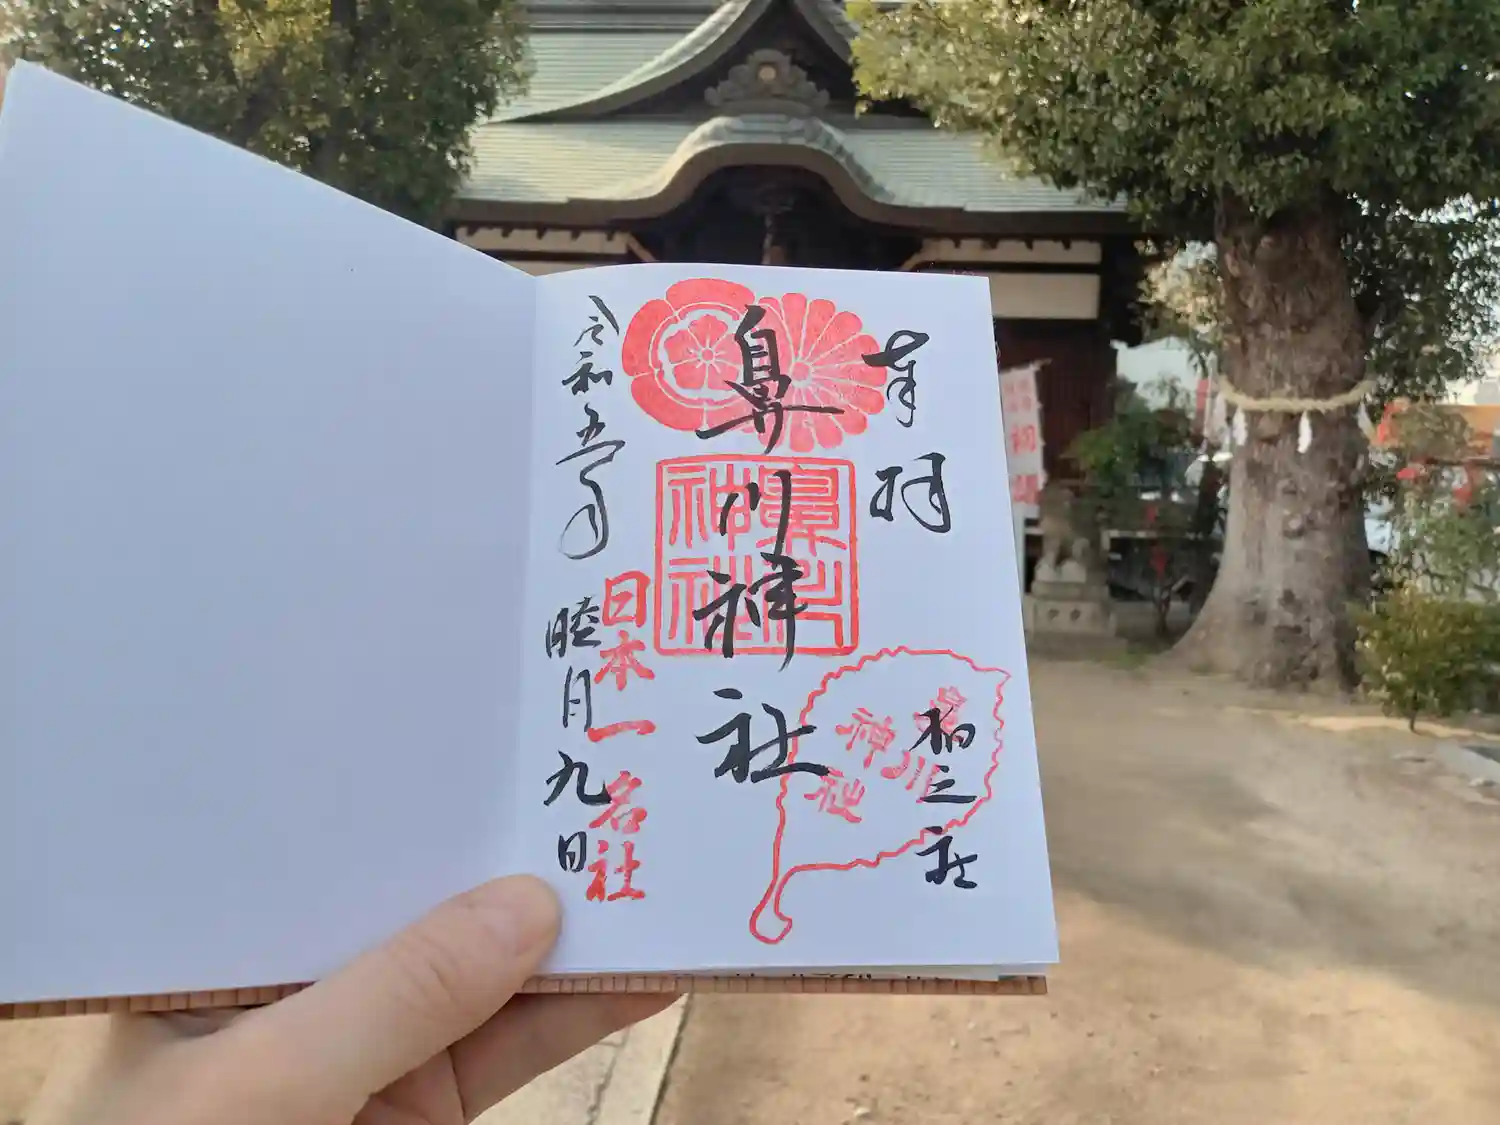 奉拝
柏三社
鼻川神社
鼻川
神社
鼻川
神
社
日本一名社
令和五年
睦月九日
初